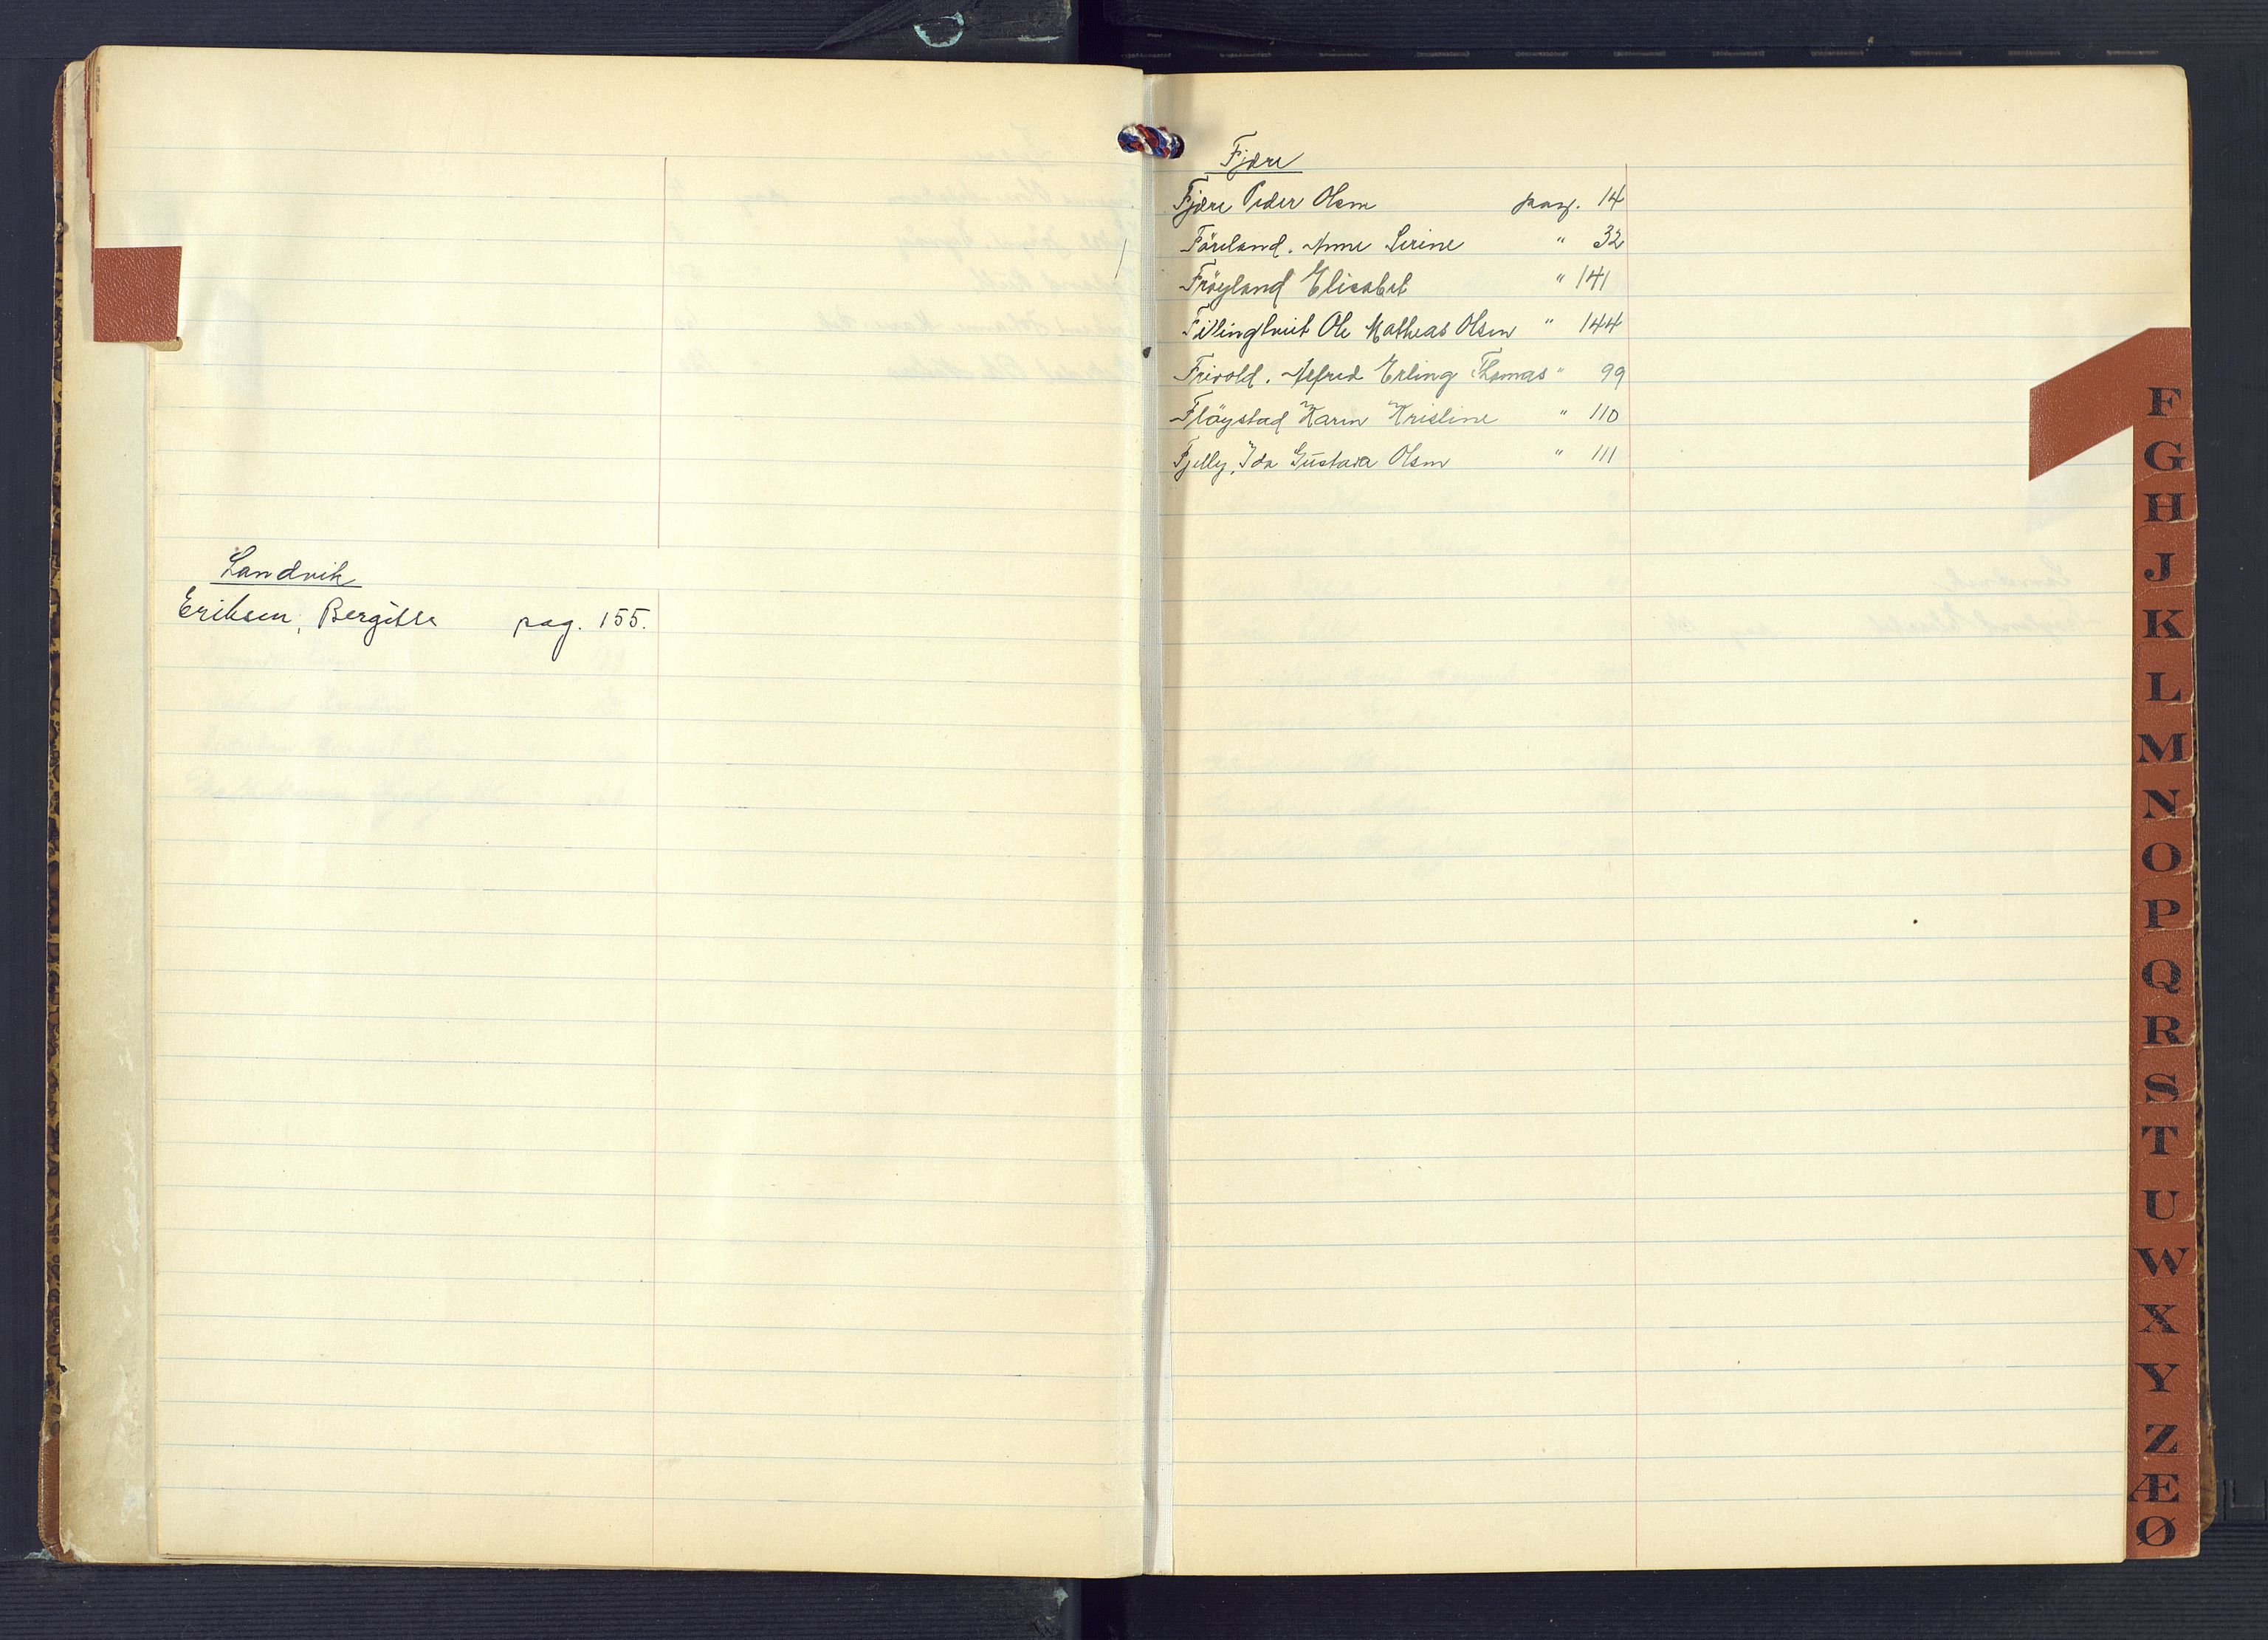 Landvik
Eriksen, Bergitte pag. 155.
Fjære
Fjære Peder Olsen pag. 14
Föreland. Anne Serine " 32
Fröyland Elisabet " 141
Fillingtveit Ole Matheas Olsen " 144
Frivold. Alfred Erling Thomas " 99
Flöystad Karen Kristine " 110
Fjelly, Ida Gustava Olsen " 111
F
G
H
J
K
L
M
N
O
P
Q
R
S
T
U
W
X
Y
Z
Æ
Ø